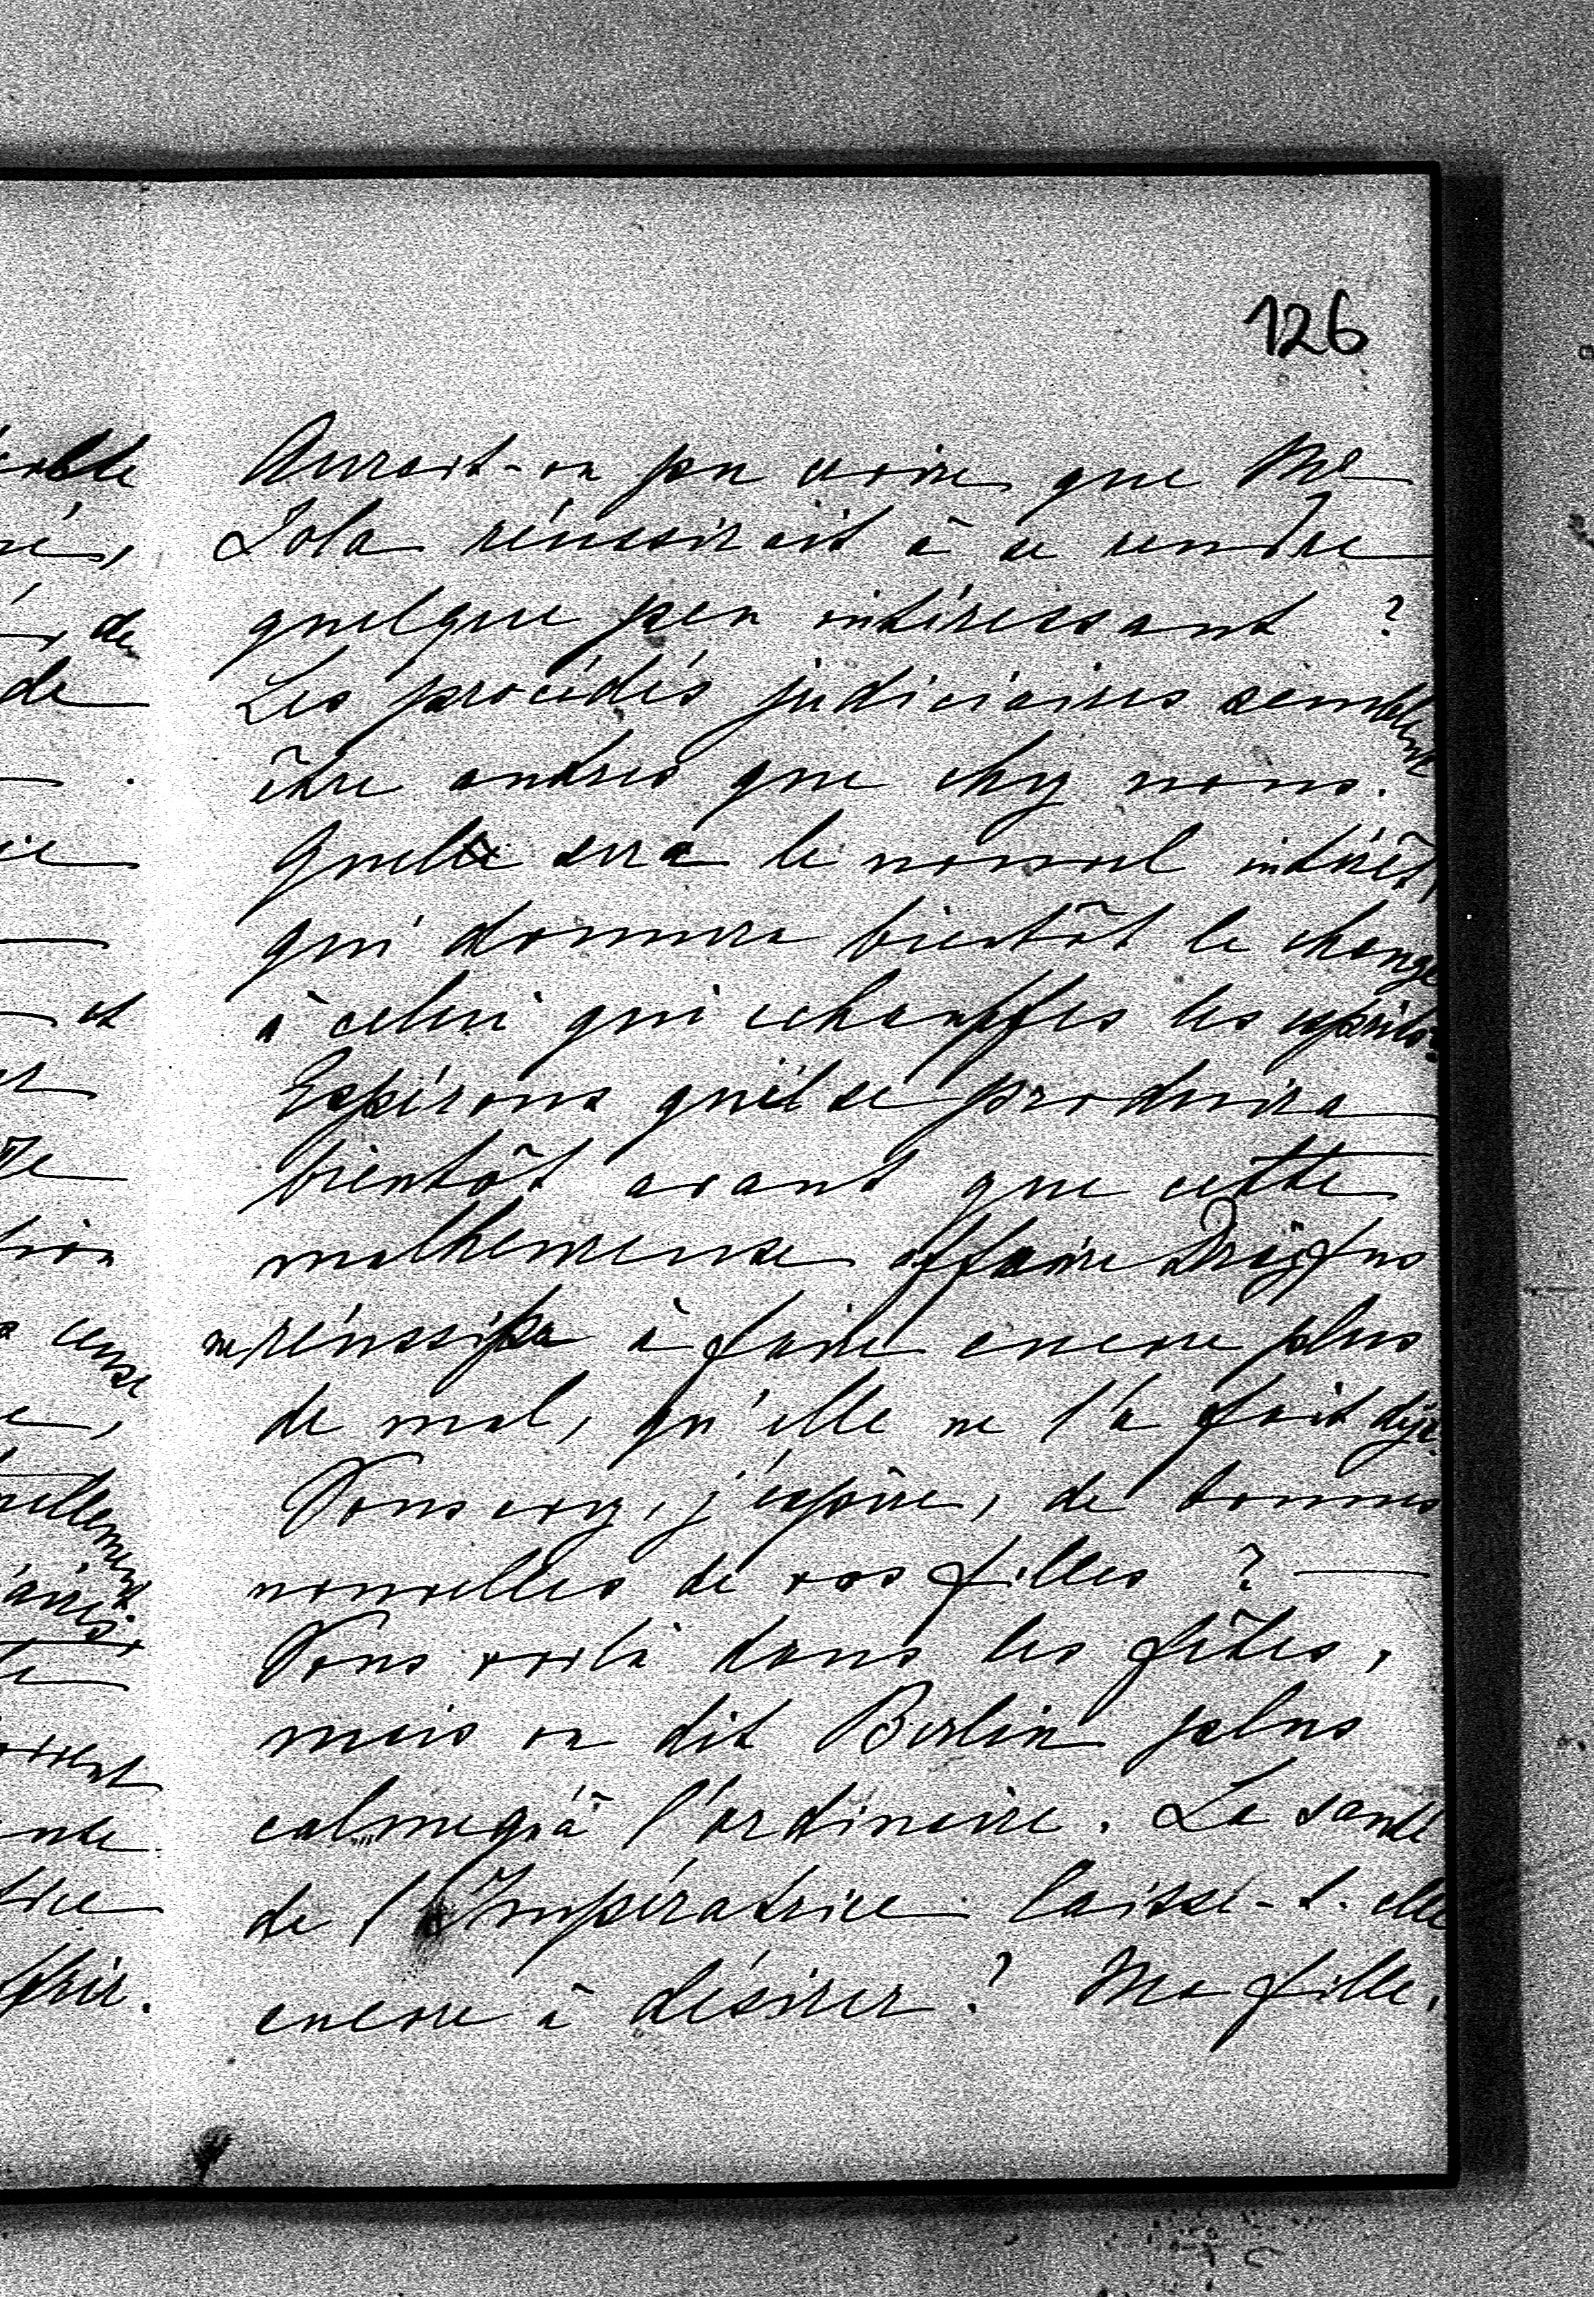 126
Aurait-on pu croire que Mr
Zola réussirait à se rendre
quelque peu intéressant ?
Les procédés judiciaires semblent
être autres que chez nous.
Quelle sera le nouvel intérêt,
qui donnera bientôt le change
à celui qui echauffes les esprits?
Espérons qu'il se produira
bientôt avant que cette
malheureuse affaire Dreÿfus
ne réussisse à faire encore plus
de mal, qu'elle ne l'a fait déjà.
Vous avez, j'éspère, de bonnes
nouvelles de vos filles ?
Vous voilà dans les fêtes,
mais on dit Berlin plus
calme qu'à l'ordinaire. La santé
de l'Impératrice laisse-t-elle
encore à désirer ? Ma fille,
de
de
et
cense